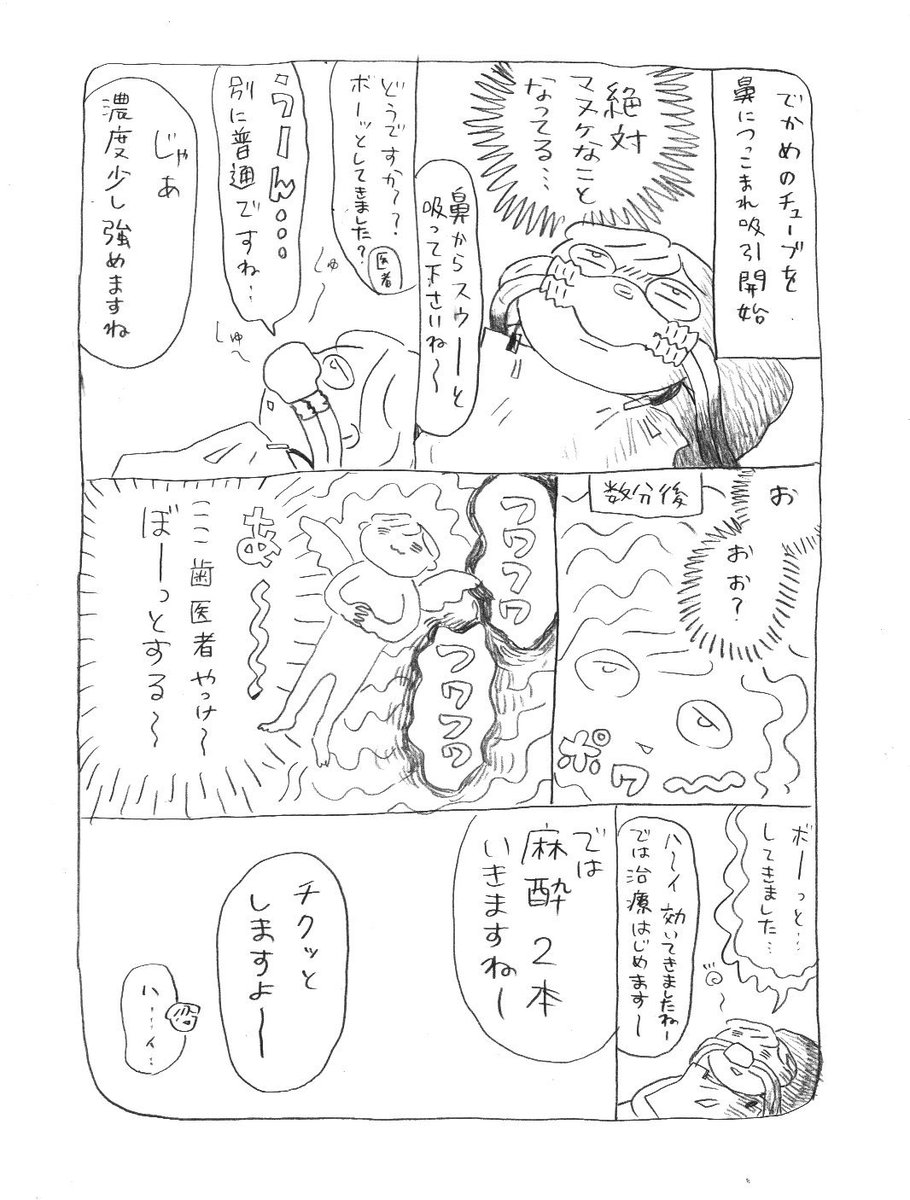 でかめのチューブを
鼻につっこまれ吸引開始
絶対
マヌケなこと
なってる…
鼻からスゥーーと
吸って下さいね〜
どうですか??
ボーッとしてきました?
医者
うーん。。。
別に普通ですね…
しゅ〜
しゅ〜
じゃあ
濃度少し強めますね
数分後
お
おお?
ポワ
フワフワ
フワフワ
あ〜〜〜
ここ歯医者やっけ〜
ぼーっとする〜
ボーっと…
してきました…
ハーイ効いてきましたねー
では治療はじめますー
では
麻酔2本
いきますねー
チクッと
しますよー
ハーイ…